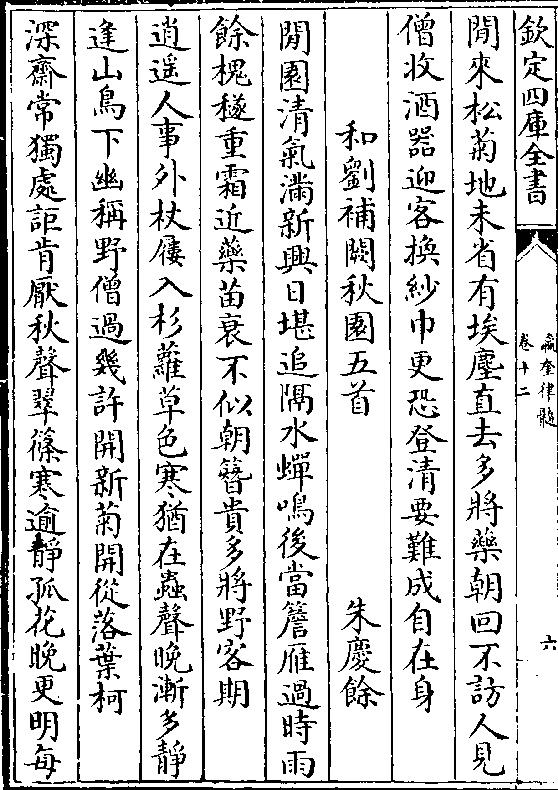 欽定四庫全書
瀛奎律髓
卷十二
六
閒來松菊地未省有埃塵直去多將藥朝回不訪人見
僧收酒器迎客換紗巾更恐登清要難成自在身
和劉補闕秋園五首　朱慶餘
閒園清氣滿新興日堪追隔水蟬鳴後當簷雁過時雨
餘槐穟重霜近藥苗衰不似朝簪貴多將野客期
逍遥人事外杖屨入杉蘿草色寒猶在蟲聲晚漸多靜
逢山鳥下幽稱野僧過幾許開新菊開從落葉柯
深齋常獨處詎肯厭秋聲翠篠寒逾靜孤花晚更明每